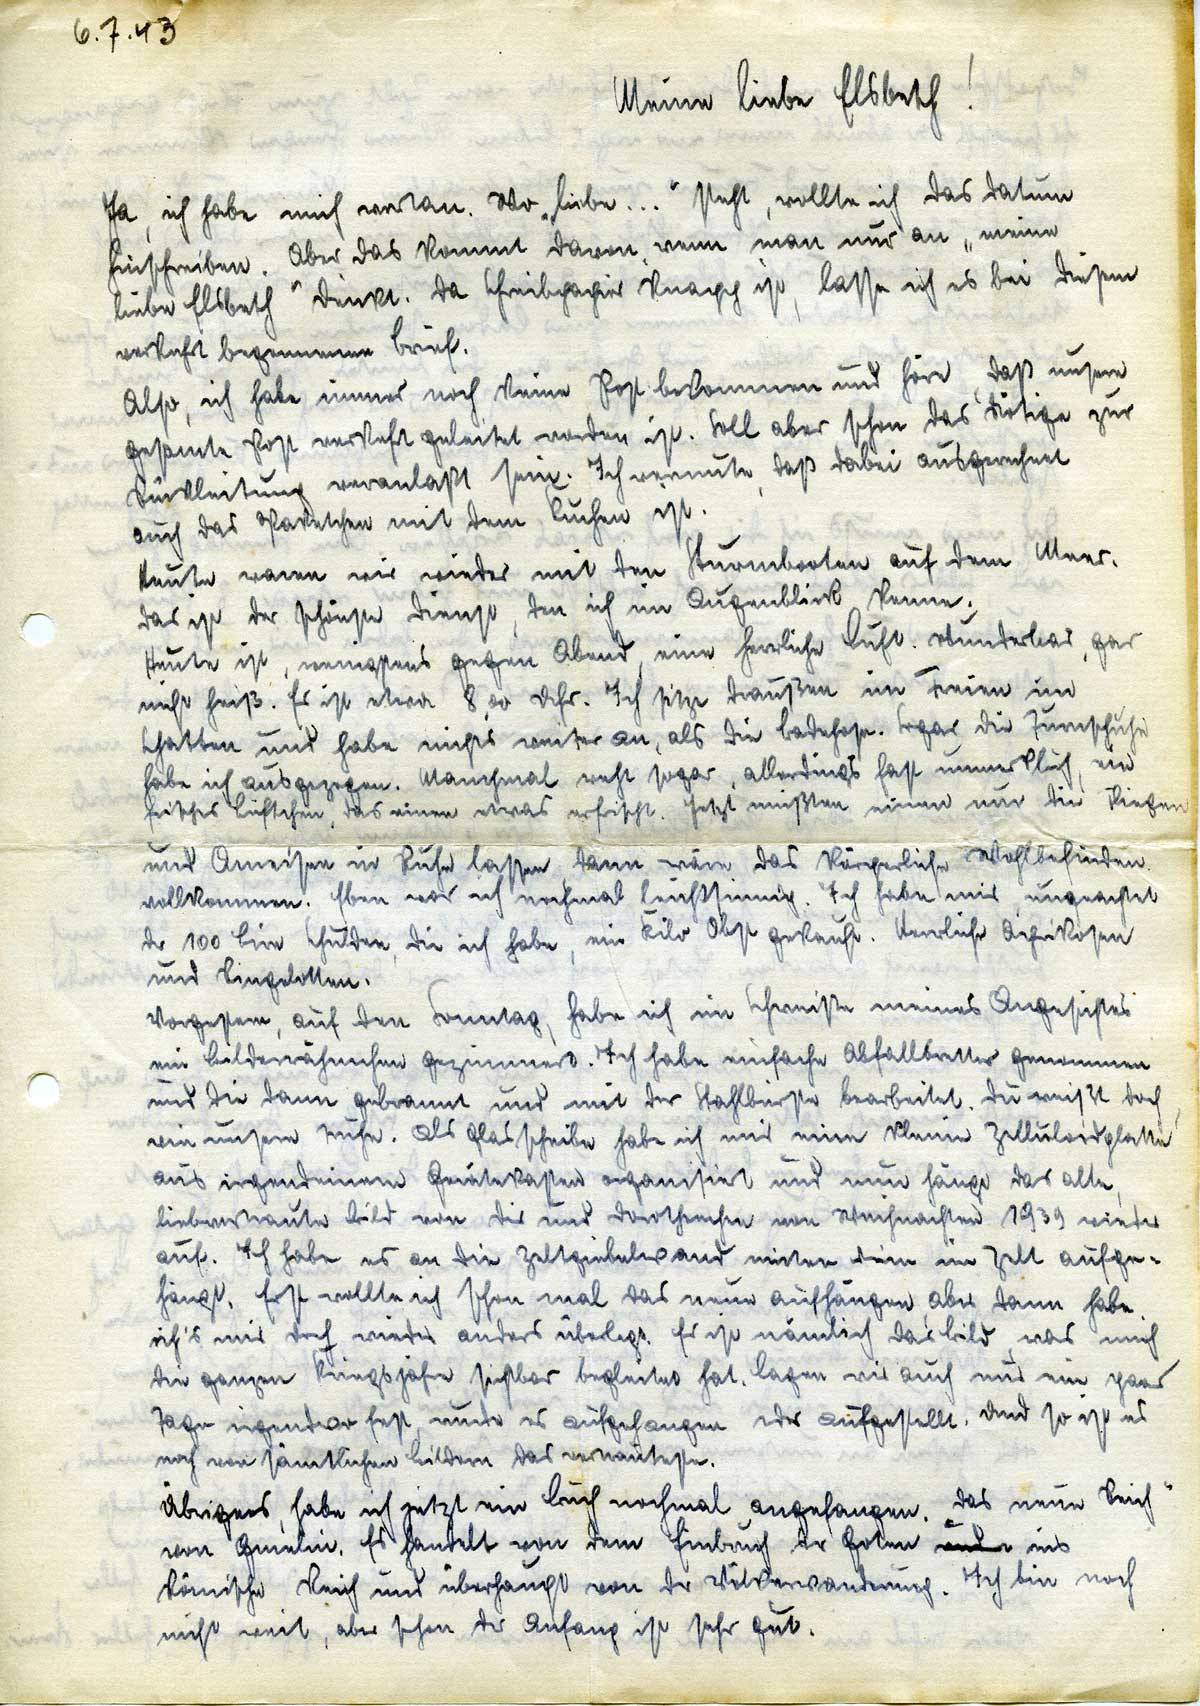 6.7.43
Meine liebe Elsbeth!
Ja, ich habe mich vertan. Wo „liebe..." steht, wollte ich das Datum
hinschreiben. Aber das kommt davon, wenn man nur an „meine
liebe Elsbeth" denkt. Da Schreibpapier knapp ist, lasse ich es bei diesem
verkehrt begonnenen Brief.
Also, ich habe immer noch keine Post bekommen und höre, daß unsere
gesamte Post verkehrt geleitet worden ist. Soll aber schon das Nötige zur
Rückleitung veranlaßt sein. Ich vermute, daß dabei ausgerechnet
auch das Paketchen mit dem Kuchen ist.
Heute waren wir wieder mit den Sturmbooten auf dem Meer.
Das ist der schönste Dienst, den ich im Augenblick kenne.
Heute ist, wenigstens gegen Abend, eine herrliche Luft. Wunderbar, gar
nicht heiß. Es ist etwa 8,00 Uhr. Ich sitze draußen im Freien im
Schatten und habe nichts weiter an, als die Badehose. Sogar die Turnschuhe
habe ich ausgezogen. Manchmal weht sogar, allerdings fast unmerklich, ein
frisches Lüftchen, das einen etwas erfrischt. Jetzt müßten einen nur die Fliegen
und Ameisen in Ruhe lassen, dann wäre das körperliche Wohlbefinden
vollkommen. Eben war ich nochmal leichtsinnig. Ich habe mir ungeachtet
der 100 Lire Schulden, die ich habe, ein Kilo Obst gekauft. Herrliche Aprikosen
und Ringelotten.
Vorgestern, auf den Sonntag, habe ich im Schweiße meines Angesichtes
ein Bilderrähmchen gezimmert. Ich habe einfache Abfallbretter genommen
und die dann gebrannt und mit der Stahlbürste bearbeitet. Du weißt doch,
wie unsere Truhe. Als Glasscheibe habe ich mir eine kleine Zelluloidplatte
aus irgendeinem Gerätekasten organisiert und nun hängt das alte,
liebvertraute Bild von Dir und Dorotheechen von Weihnachten 1939 wieder
auf. Ich habe es an die Zeltgiebelwand mitten drin im Zelt aufge-
hängt. Erst wollte ich schon mal das neue aufhängen aber dann habe
ich's mir doch wieder anders überlegt. Es ist nämlich das Bild, was mich
die ganzen Kriegsjahre sichtbar begleitet hat. Lagen wir auch nur ein paar
Tage irgendwo fest, wurde es aufgehangen oder aufgestellt. Und so ist es
noch von sämtlichen Bildern das vertrauteste.
Übrigens, habe ich jetzt ein Buch nochmal angefangen. „Das neue Reich"
von Gmelin. Es handelt von dem Einbruch der Goten ins
Römische Reich und überhaupt von der Völkerwanderung. Ich bin noch
nicht weit, aber schon der Anfang ist sehr gut.